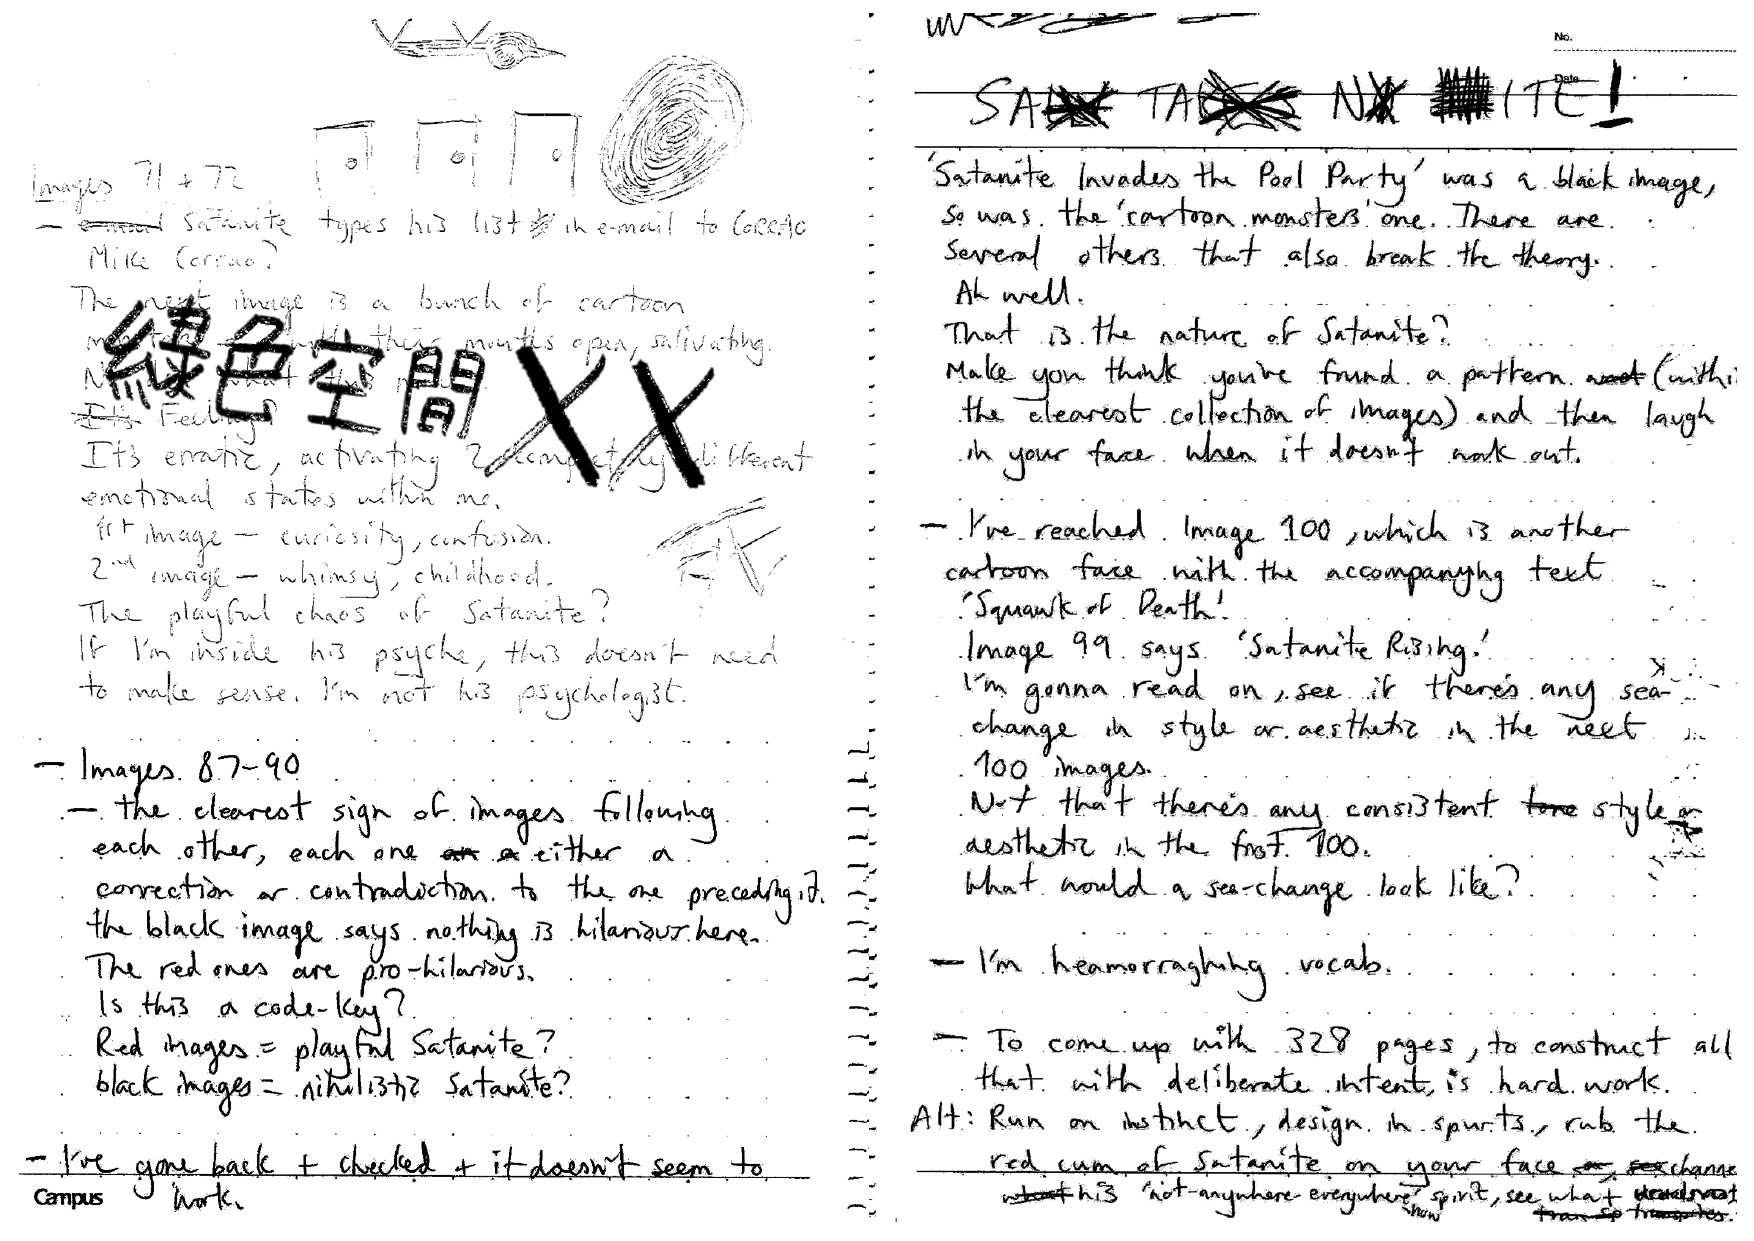 Images 71 + 72
— email Satanite types his list in e-mail to CORRAO
Mike Corrao?
The next image is a bunch of cartoon
their mouths open, salivating.
綠色空間 XX
It's Feeling?
It's erratic, activating 2 completely different
emotional states within me.
1st image — curiosity, confusion.
2nd image — whimsy, childhood.
The playful chaos of Satanite?
If I'm inside his psyche, this doesn't need
to make sense. I'm not his psychologist.
— Images 87-90
— the clearest sign of images following
each other, each one an a either a
correction or contradiction to the one preceding it.
the black image says nothing is hilarious here.
The red ones are pro-hilarious.
Is this a code-key?
Red images = playful Satanite?
black images = nihilistic Satanite?
— I've gone back + checked + it doesn't seem to
work.
Campus
No.
Date
SA TA N ITE!
'Satanite Invades the Pool Party' was a black image,
so was the 'cartoon monsters' one. There are
several others that also break the theory.
Ah well.
That is the nature of Satanite?
Make you think you've found a pattern (withi
the clearest collection of images) and then laugh
in your face when it doesn't work out.
— I've reached Image 100, which is another
cartoon face with the accompanying text
'Squawk of Death'.
Image 99 says 'Satanite Rising.'
I'm gonna read on, see if there's any sea-
change in style or aesthetic in the next
100 images.
Not that there's any consistent tone style or
aesthetic in the first 100.
What would a sea-change look like?
— I'm heamorraghing vocab.
— To come up with 328 pages, to construct all
that with deliberate intent, is hard work.
Alt: Run on instinct, design in spurts, rub the
red cum of Satanite on your face or, channe
what his 'not-anywhere-everywhere' spirit, see what
how